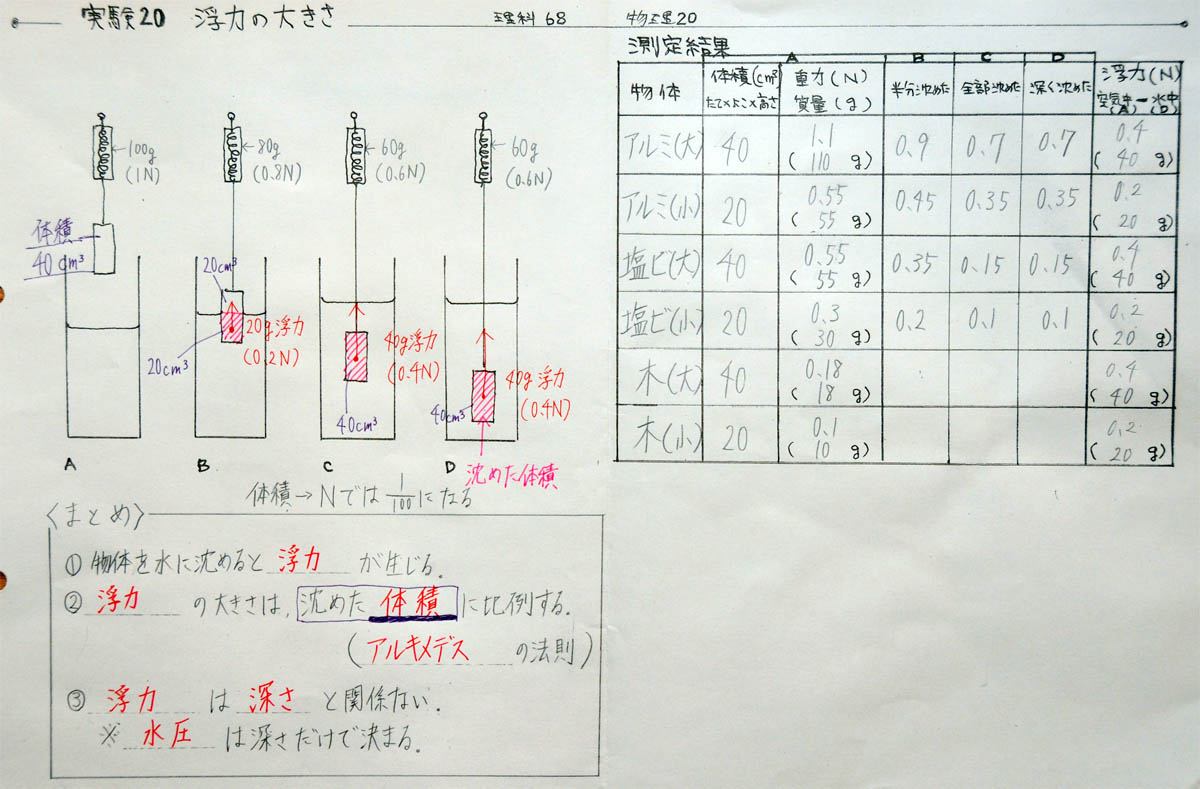 実験20 浮力の大きさ 理科 68 物理20
100g
(1N)
80g
(0.8N)
60g
(0.6N)
60g
(0.6N)
体積
40cm³
20cm³
20g浮力
(0.2N)
20cm³
40g浮力
(0.4N)
40cm³
40g浮力
(0.4N)
40cm³
A B C D
沈めた体積
体積→Nでは1/100になる
〈まとめ〉
① 物体を水に沈めると 浮力 が生じる.
② 浮力 の大きさは, 沈めた 体積 に比例する.
(アルキメデス の法則)
③ 浮力 は 深さ と関係ない.
※ 水圧 は深さだけで決まる.
測定結果
A B C D
物体 体積(cm³) たて×よこ×高さ 重力(N) 質量(g) 半分沈めた 全部沈めた 深く沈めた 浮力(N) 空気中(A)ー水中(D)
アルミ(大) 40 1.1 (110 g) 0.9 0.7 0.7 0.4 (40 g)
アルミ(小) 20 0.55 (55 g) 0.45 0.35 0.35 0.2 (20 g)
塩ビ(大) 40 0.55 (55 g) 0.35 0.15 0.15 0.4 (40 g)
塩ビ(小) 20 0.3 (30 g) 0.2 0.1 0.1 0.2 (20 g)
木(大) 40 0.18 (18 g) 0.4 (40 g)
木(小) 20 0.1 (10 g) 0.2 (20 g)